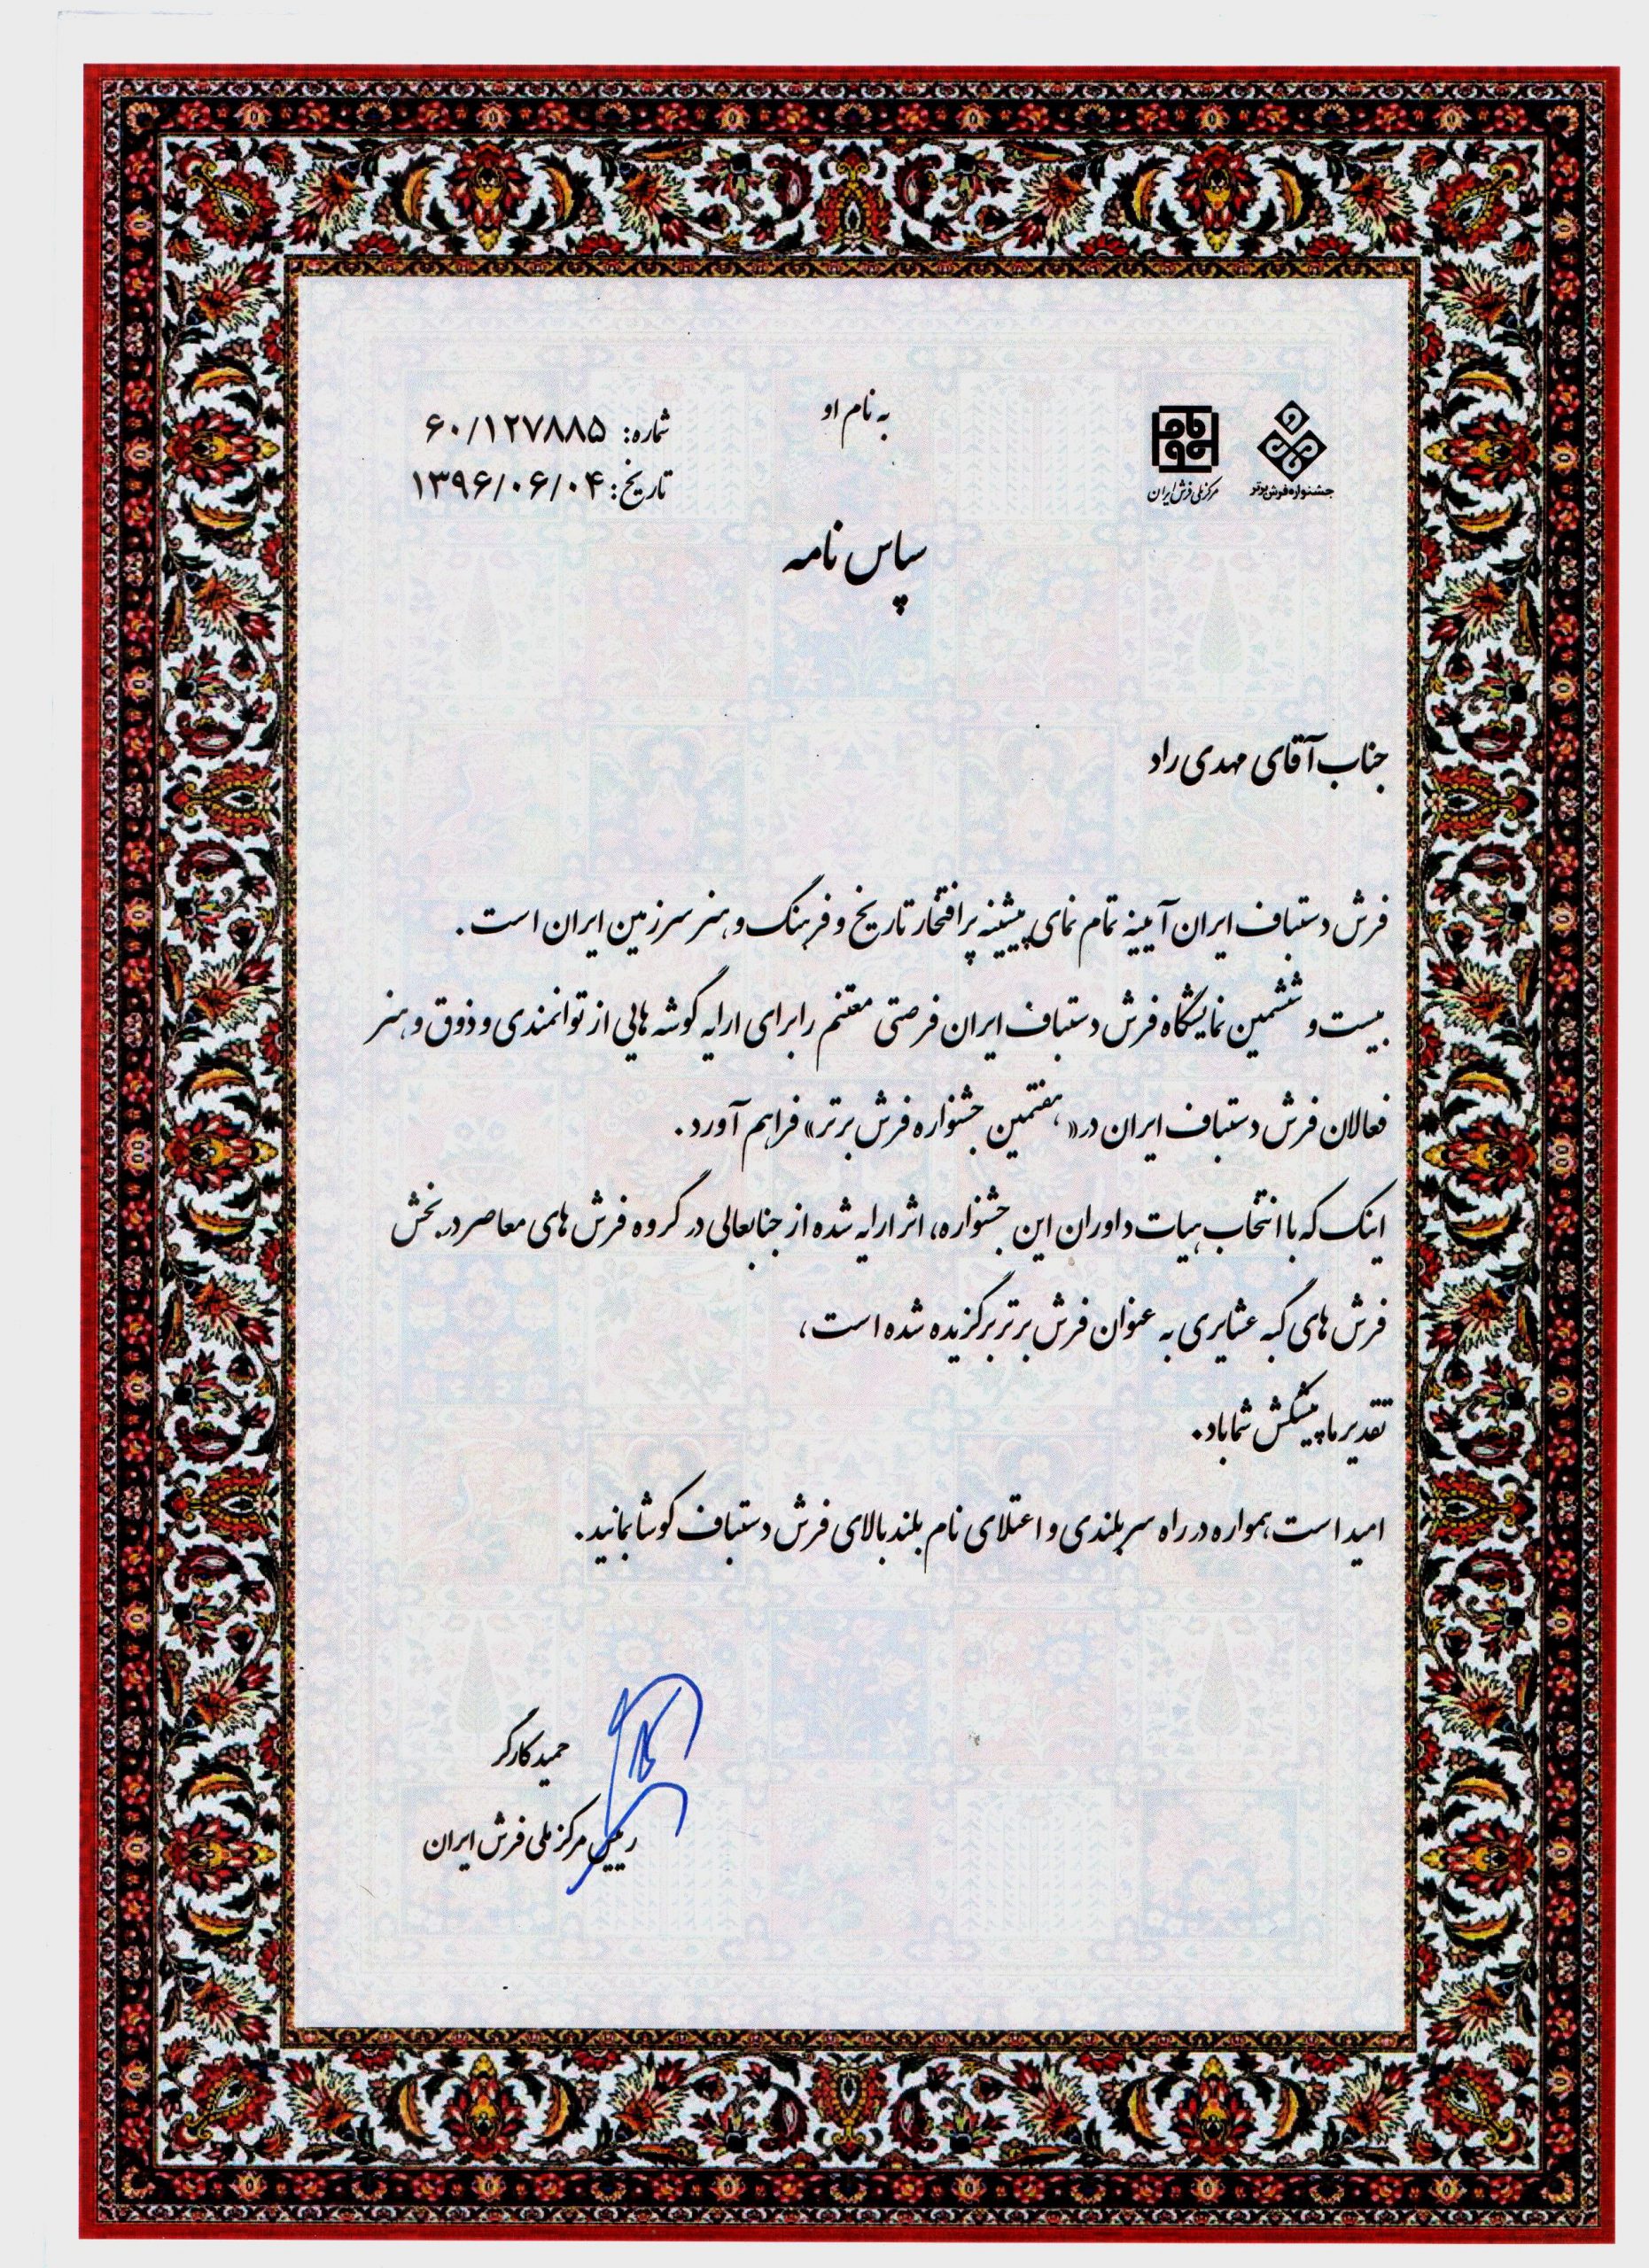 به نام او
جشنواره فرش برتر
مرکز ملی فرش ایران
شماره: ۶۰/۱۲۷۸۸۵
تاریخ: ۱۳۹۶/۰۶/۰۴
سپاس نامه
جناب آقای مهدی راد
فرش دستباف ایران آیینه تمام نمای پیشینه پر افتخار تاریخ و فرهنگ و هنر سرزمین ایران است.
بیست و ششمین نمایشگاه فرش دستباف ایران فرصتی مغتنم را برای ارایه گوشه هایی از توانمندی و ذوق و هنر
فعالان فرش دستباف ایران در «هفتمین جشنواره فرش برتر» فراهم آورد.
اینک که با انتخاب هیات داوران این جشنواره، اثر ارایه شده از جنابعالی در گروه فرش های معاصر در بخش
فرش های گبه عشایری به عنوان فرش برتر برگزیده شده است،
تقدیر ما پیشکش شما باد.
امید است همواره در راه سربلندی و اعتلای نام بلند بالای فرش دستباف کوشا بمانید.
حمید کارگر
رییس مرکز ملی فرش ایران